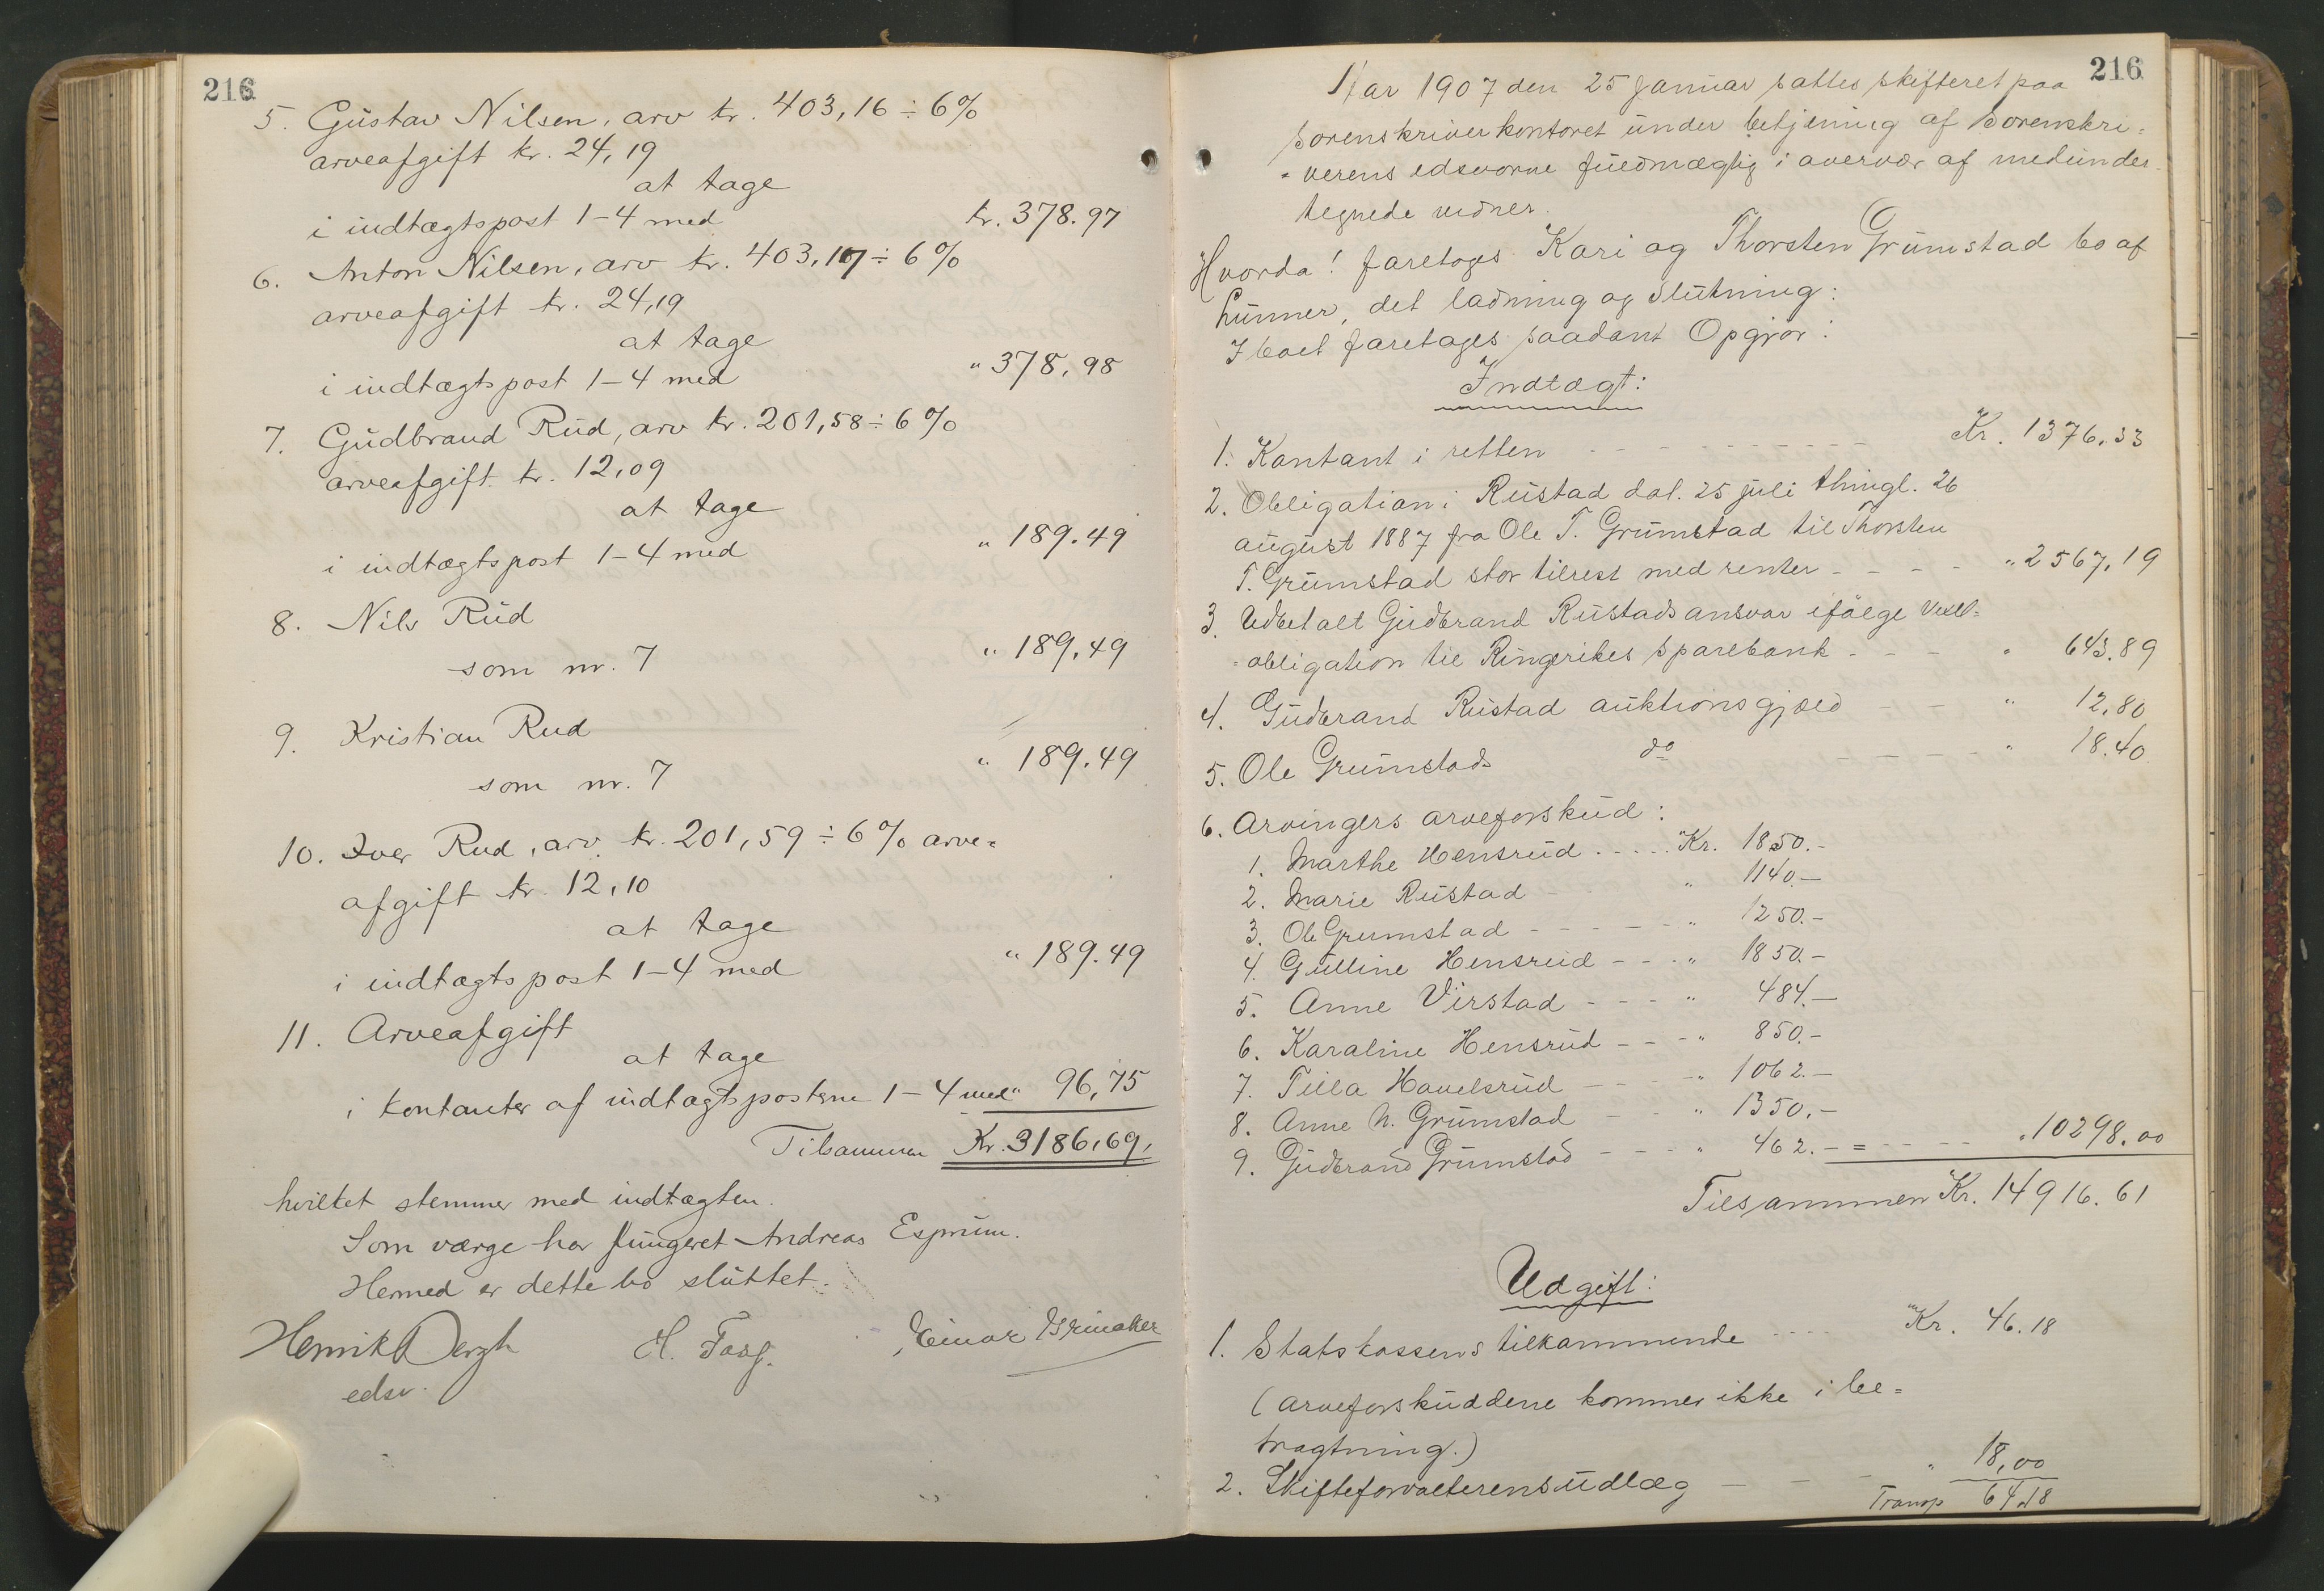 216
5. Gustav Nilsen, arv kr. 403,16 ÷ 6%
arveafgift kr. 24,19
at tage
i indtægtspost 1-4 med kr. 378.97
6. Anton Nilsen, arv kr. 403,17 ÷ 6%
arveafgift kr. 24,19
at tage
i indtægtspost 1-4 med " 378,98
7. Gudbrand Rud, arv kr. 201,58 ÷ 6%
arveafgift kr. 12,09
at tage
i indtægtspost 1-4 med " 189.49
8. Nils Rud
som nr. 7 " 189,49
9. Kristian Rud
som nr. 7 " 189.49
10. Iver Rud, arv kr. 201,59 ÷ 6% arve=
afgift kr. 12,10
at tage
i indtægtspost 1-4 med " 189.49
11. Arveafgift
at tage
i kontanter af indtægtsposterne 1-4 med " 96,75
Tilsammen Kr. 3186,69,
hvilket stemmer med indtægten.
Som værge har fungeret Andreas
Hermed er dette bo sluttet.
Henrik Bergh H. Einar Grinaker
edsv.
216
Aar 1907 den 25 Januar sattes skifteret paa
sorenskriverkontoret under betjening af sorenskri=
=verens edsvorne fuldmægtig i overvær af medunder
tegnede vidner.
Hvorda! foretoges Kari og Thorsten Grumstad bo af
Lunner, det ladning og Slutning:
I boet foretoges saadant Opgjør:
Indtægt:
1. Kontant i retten - - - Kr. 1376,33
2. Obligation i Rustad dat. 25 juli thingl. 26
august 1887 fra Ole T. Grumstad til Thorsten
T. Grumstad stor tilrest med renter - - - " 2567,19
3. Udbetalt Gudbrand Rustads ansvar ifølge vexel=
=obligation til Ringerikes Sparebank - - - " 643.89
4. Gudbrand Rustad auktionsgjæld - - " 12,80
5. Ole Grumstads do - - - " 18.40
6. Arvingers arveforskud:
1. Marthe Hensrud . . . . Kr. 1850.-
2. Marie Rustad - " 1140.-
3. Ole Grumstad - - - - " 1250.-
4. Gulline Hensrud - - - " 1850.-
5. Anne Virstad - - - " 484.-
6. Karaline Hensrud - - - " 850.-
7. Tilla Havelsrud - - - " 1062.-
8. Anne N. Grumstad - - " 1350.-
9. Gudbrand Grumstad - - - " 462.- = - - - " 10298.00
Tilsammen Kr. 14916.61
Udgift:
1. Statskassens tilkommende . . . . Kr. 46.18
(arveforskuddene kommer ikke i be=
tragtning.)
2. Skifteforvalterens udlæg - - - " 18,00
Transp 64,18